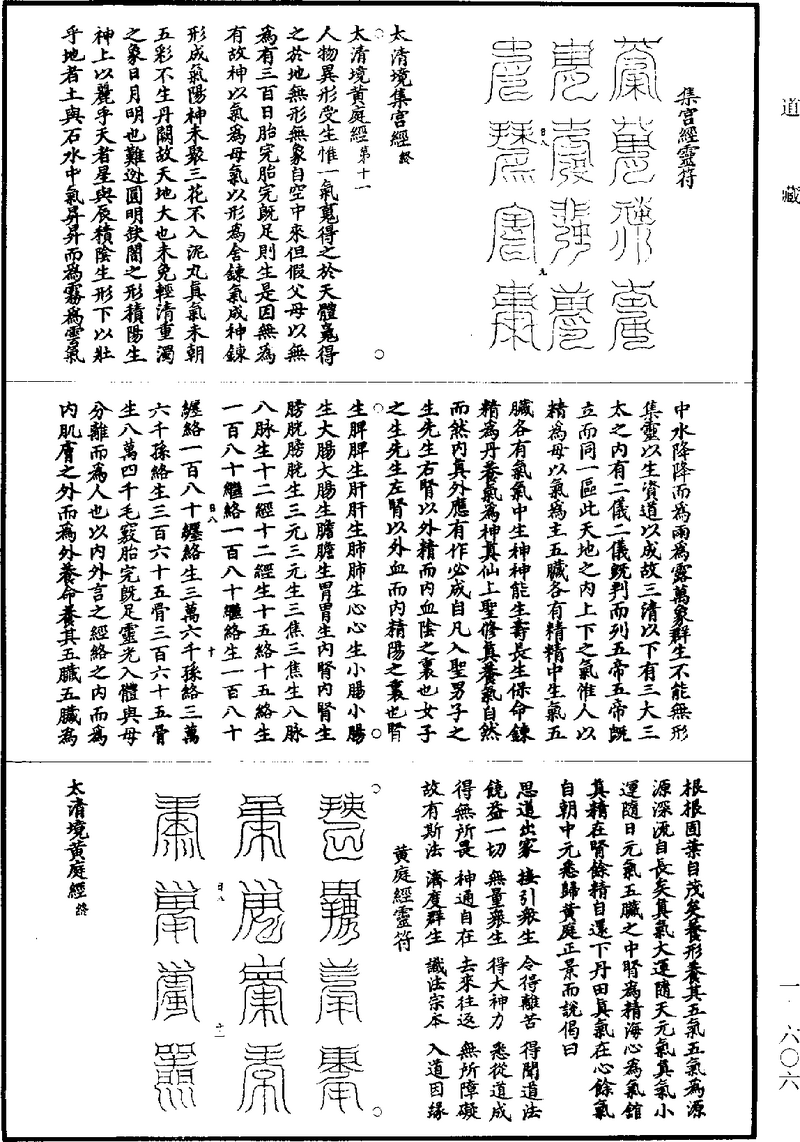 道藏
集宮經靈符
太清境集宮經終
太清境黃庭經第十一
人物異形受生惟一氣寬得之於天體魄得
之於地無形無象自空中來但假父母以無
為有三百日胎完胎完既足則生是因無為
有故神以氣為母氣以形為舍鍊氣成神鍊
形成氣陽神未聚三花不入泥丸真氣未朝
五彩不生丹闕故天地大也未免輕清重濁
之象日月明也難逃圓明缺闇之形積陽生
神上以麗乎天者星與辰積陰生形下以壯
乎地者土與石水中氣昇昇而為霧為雲氣
中水降降而為雨為露萬象群生不能無形
集靈以生資道以成故三清以下有三大三
太之內有二儀二儀既判而列五帝五帝既
立而同一區此天地之內上下之氣惟人以
精為母以氣為主五臟各有精精中生氣五
臟各有氣氣中生神神能生壽長生保命鍊
精為丹養氣為神真仙上聖修真養氣自然
而然內真外應有作必成自凡入聖男子之
生先生右腎以外精而內血陰之裏也女子
之生先生左腎以外血而內精陽之裏也腎
生脾脾生肝肝生肺肺生心心生小腸小腸
生大腸大腸生膽膽生胃胃生內腎內腎生
膀胱膀胱生三元三元生三焦三焦生八脉
八脉生十二經十二經生十五絡十五絡生
一百八十繼絡一百八十繼絡生一百八十
纏絡一百八十纏絡生三萬六千孫絡三萬
六千孫絡生三百六十五骨三百六十五骨
生八萬四千毛竅胎完既足靈光入體與母
分離而為人也以內外言之經絡之內而為
內肌膚之外而為外養命養其五臟五臟為
根根固葉自茂矣養形養其五氣五氣為源
源深流自長矣真氣大運隨天元氣真氣小
運隨日元氣五臟之中腎為精海心為氣館
真精在腎餘精自還下丹田真氣在心餘氣
自朝中元悉歸黃庭正景而說偈曰
思道出家 接引眾生 令得離苦 得聞道法
饒益一切 無量眾生 得大神力 悉從道成
得無所畏 神通自在 去來往返 無所障礙
故有斯法 濟度群生 識法宗本 入道因緣
黃庭經靈符
太清境黃庭經終
一·六〇六